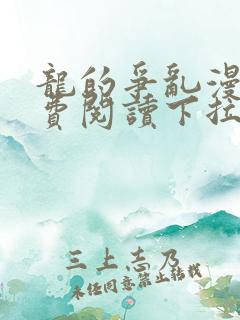 龍的爭亂漫
費閱讀下拉
三上志乃
未經同意禁止轉載